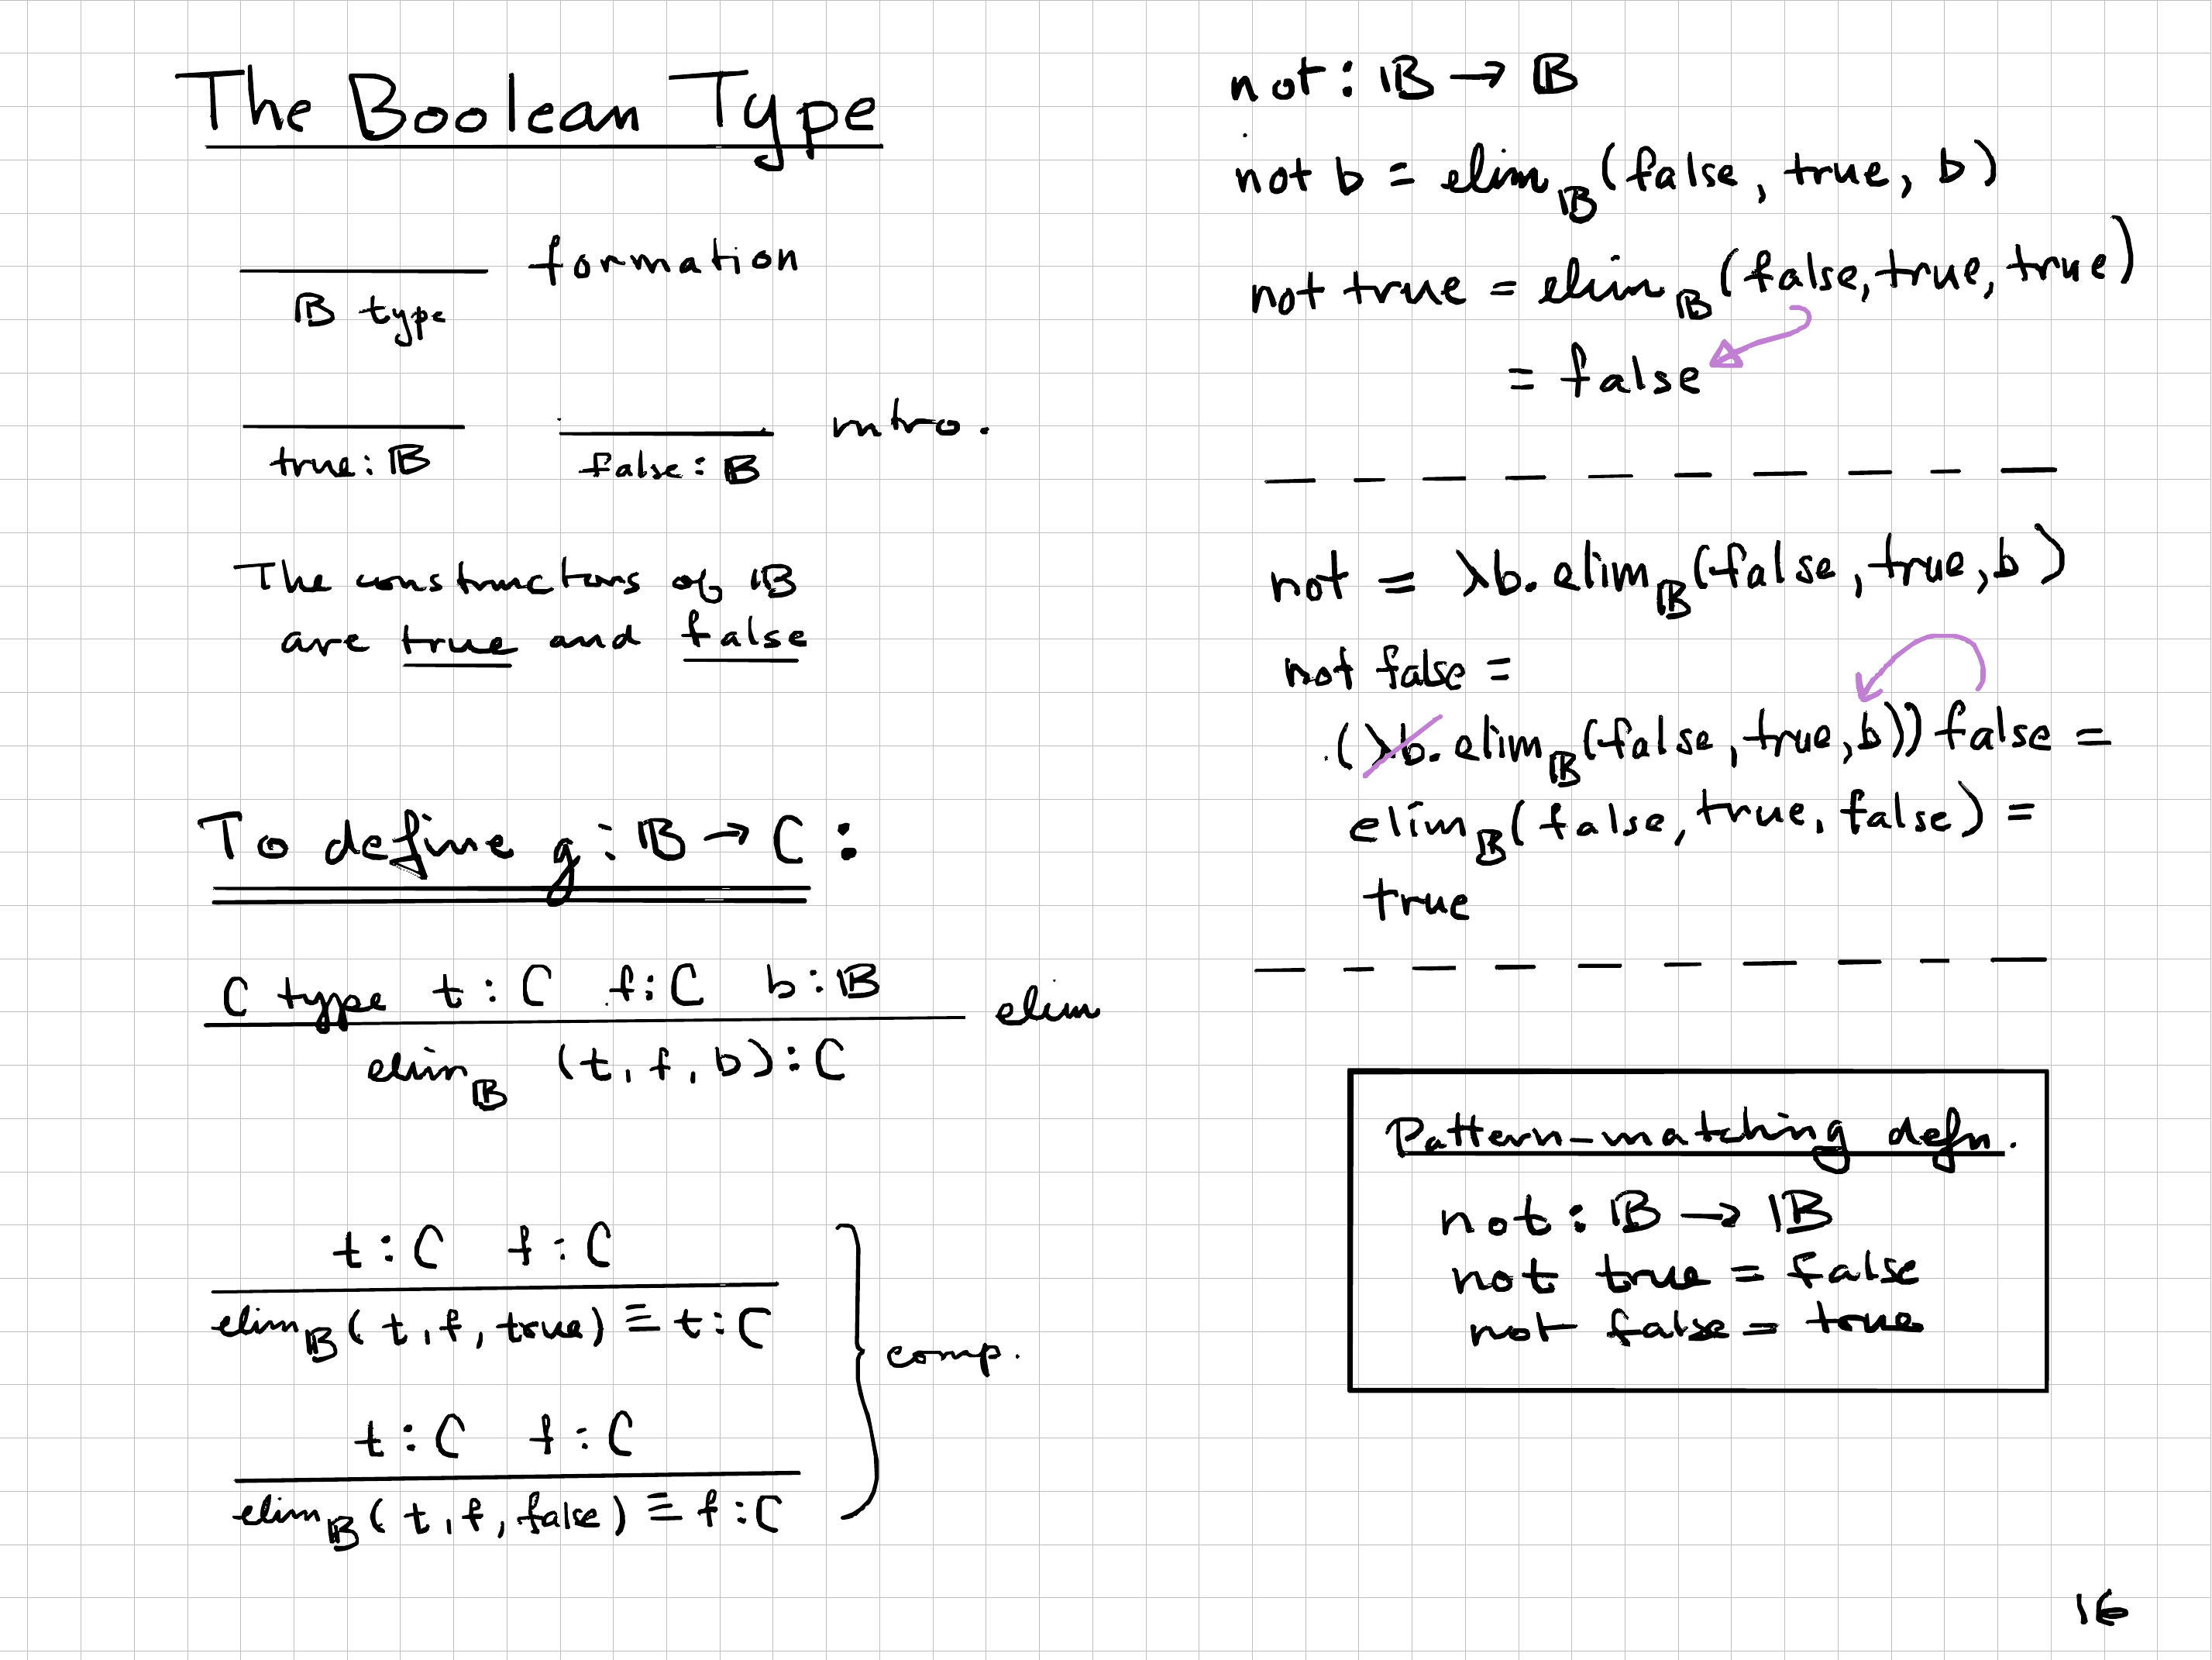 The Boolean Type
formation
𝔹 type
intro.
true : 𝔹 false : 𝔹
The constructors of 𝔹
are true and false
To define g : 𝔹 → C :
C type t : C f : C b : 𝔹
elim
elim_𝔹 (t, f, b) : C
t : C f : C
elim_𝔹 (t, f, true) ≡ t : C
comp.
t : C f : C
elim_𝔹 (t, f, false) ≡ f : C
not : 𝔹 → 𝔹
not b = elim_𝔹 (false, true, b)
not true = elim_𝔹 (false, true, true)
= false
not = λb. elim_𝔹 (false, true, b)
not false =
(λb. elim_𝔹 (false, true, b)) false =
elim_𝔹 (false, true, false) =
true
Pattern-matching defn.
not : 𝔹 → 𝔹
not true = false
not false = true
16